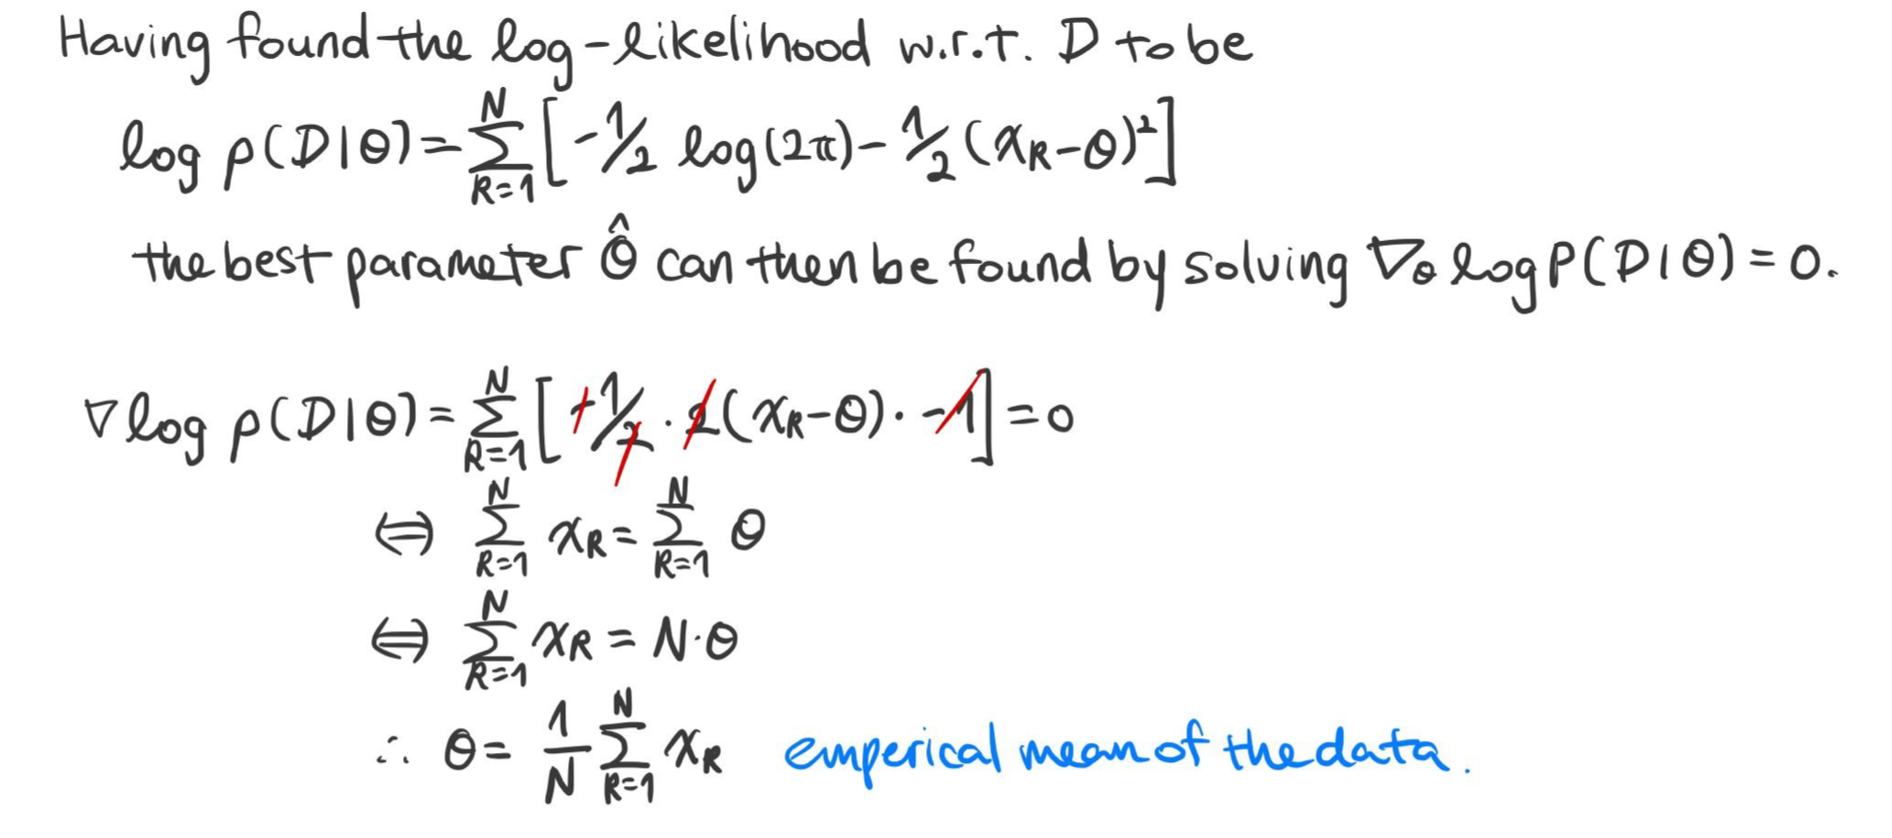 Having found the log-likelihood w.r.t. D to be
log p(D|θ) = Σ_{k=1}^{N} [-1/2 log(2π) - 1/2 (x_k - θ)²]
the best parameter θ̂ can then be found by solving ∇_θ log P(D|θ) = 0.
∇ log p(D|θ) = Σ_{k=1}^{N} [-1/2 · 2(x_k - θ) · -1] = 0
⇔ Σ_{k=1}^{N} x_k = Σ_{k=1}^{N} θ
⇔ Σ_{k=1}^{N} x_k = N·θ
∴ θ = 1/N Σ_{k=1}^{N} x_k emperical mean of the data.